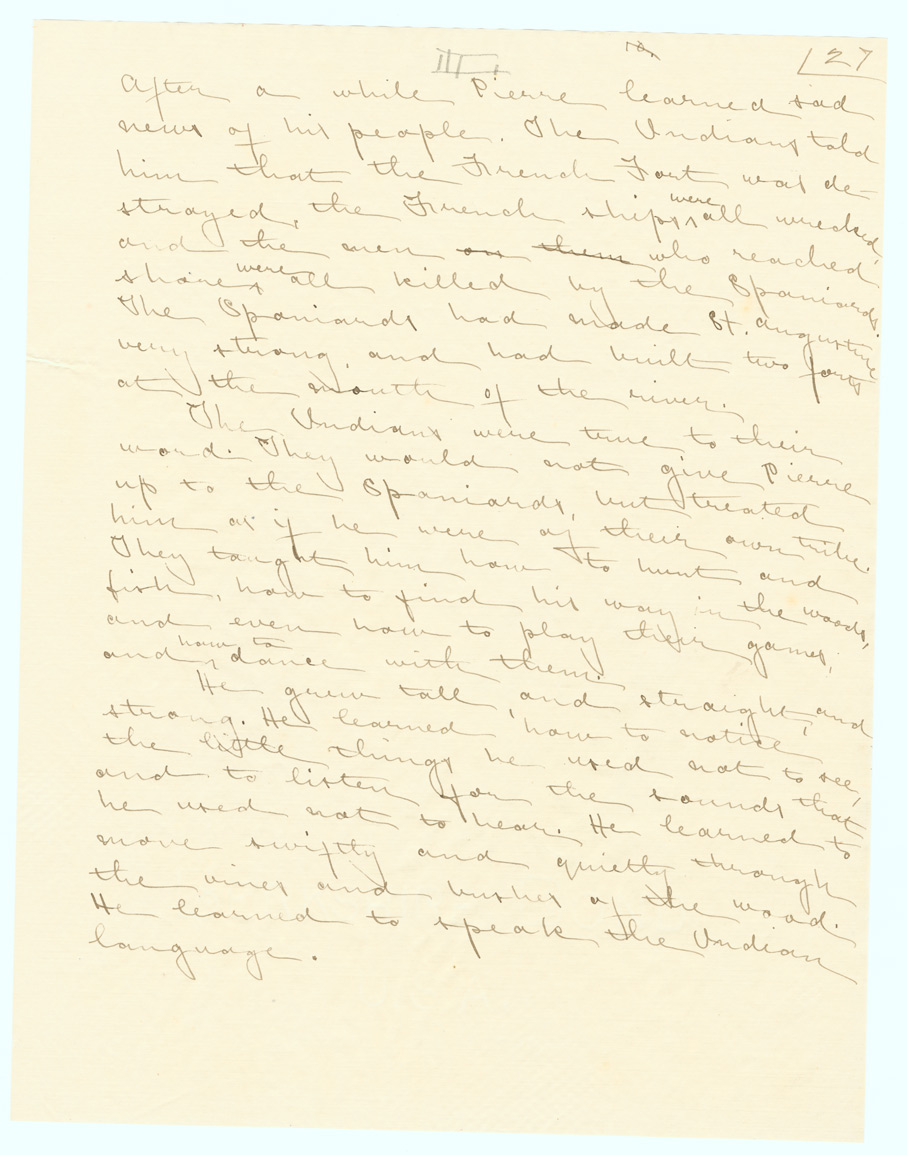 III.
27
After a while Pierre learned sad
news of his people. The Indians told
him that the French Fort was de-
stroyed, the French ships were all wrecked,
and the men on them who reached
shore were all killed by the Spaniards.
The Spaniards had made St. Augustine
very strong, and had built two forts
at the mouth of the river.
The Indians were true to their
word. They would not give Pierre
up to the Spaniards, but treated
him as if he were of their own tribe.
They taught him how to hunt and
fish, how to find his way in the woods,
and even how to play their games,
and how to dance with them.
He grew tall, and straight, and
strong. He learned how to notice
the little things he used not to see,
and to listen for the sounds that
he used not to hear. He learned to
move swiftly and quietly through
the vines and bushes of the wood.
He learned to speak the Indian
language.